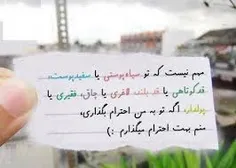 مهم نیست که تو سیاه پوستی یا سفید پوست،
قد کوتاهی یا قد بلند لاغری یا چاق، فقیری یا
پولدار، اگه تو به من احترام بگذاری،
منم بهت احترام میگذارم :)